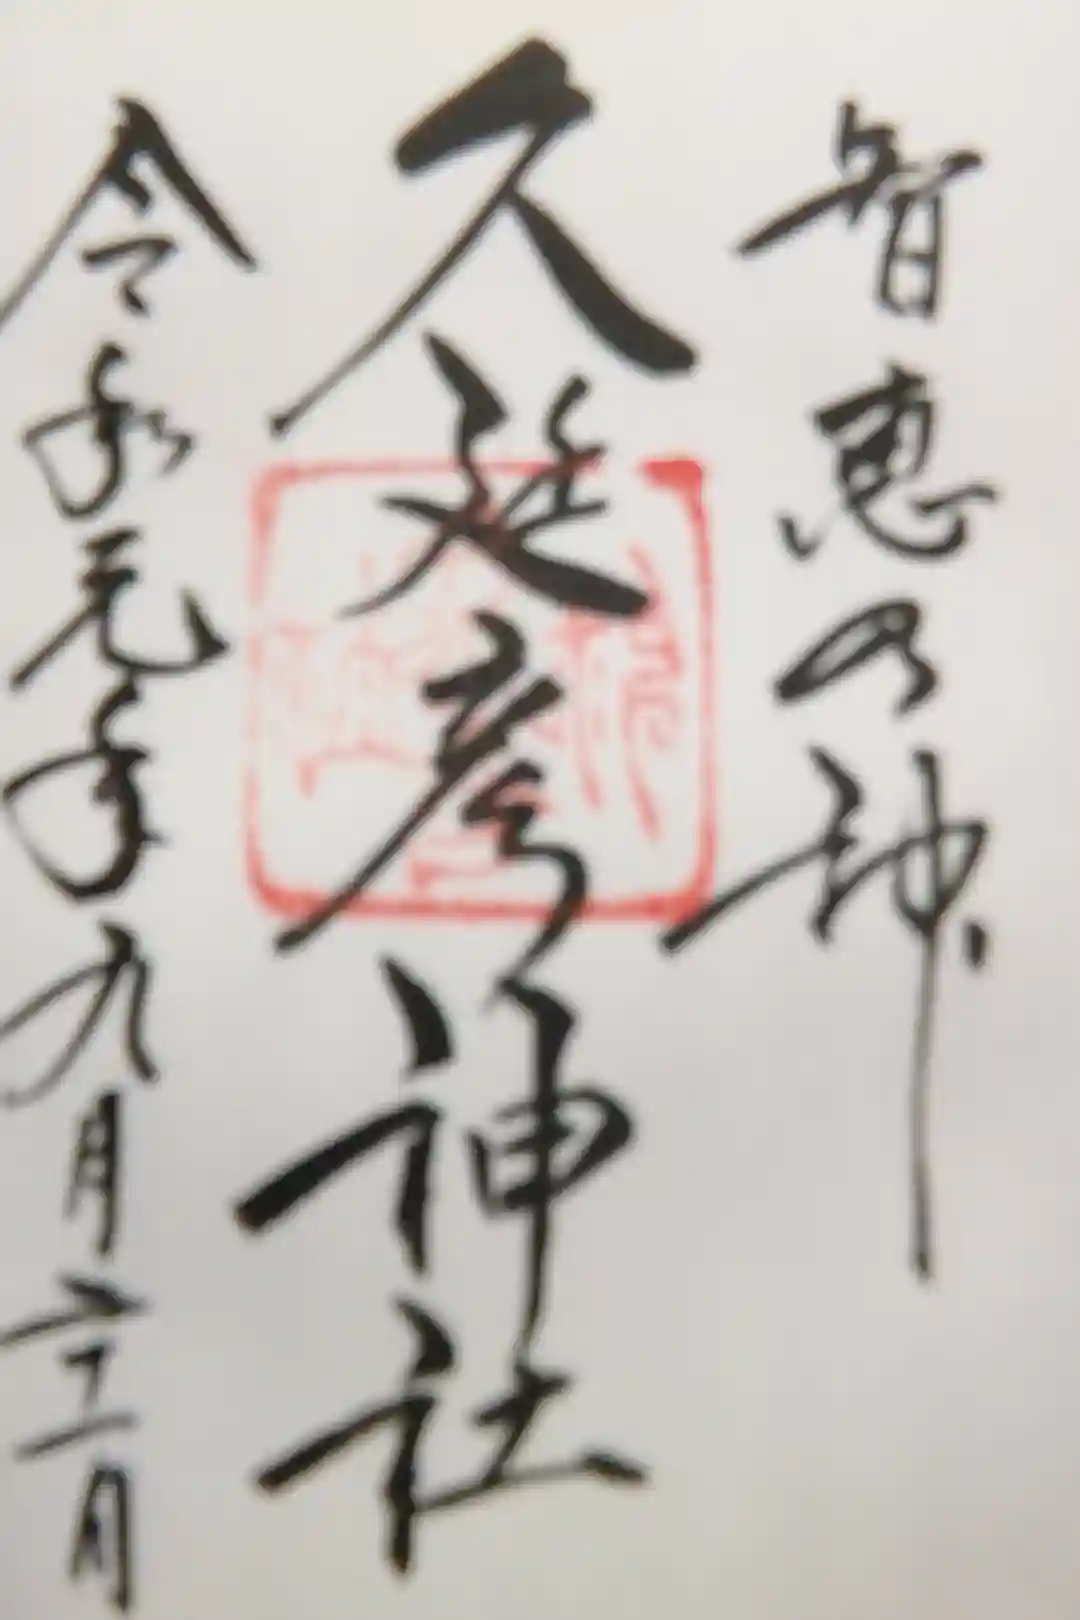 智恵の神
久延彦神社
令和元年九月二十二日